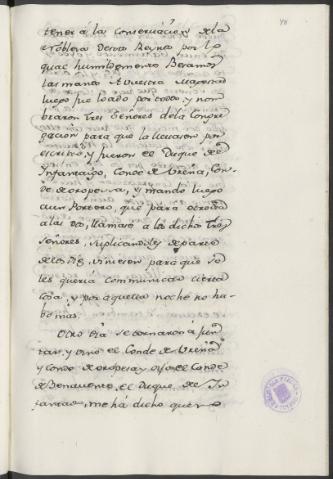 tener à la Conservación de la
Nobleza destos Reynos por lo
qual humildemente Besamos
las manos a Vuestra Magestad
luego fue loado por todos, y nom
braron tres Señores de la Congre
gacion para que la llevasen por
escrito, y fueron el Duque del
Infantazgo, Conde de Ureña, Con
de de oropessa, y mando luego
a un Portero, que para otro dia
a las dos, llamase à los dichos Tres
Señores, suplicandoles de parte
de los diez viniesen para que se
les queria comunicar cierta
cosa, y por aquella noche no hu
bo mas.
Otro dia se tornaron à jun
tar, y vino el Conde de Ureña
y Conde de oropesa, y dijo el Conde
de Benavente, el Duque del In
fantado, me há dicho que no